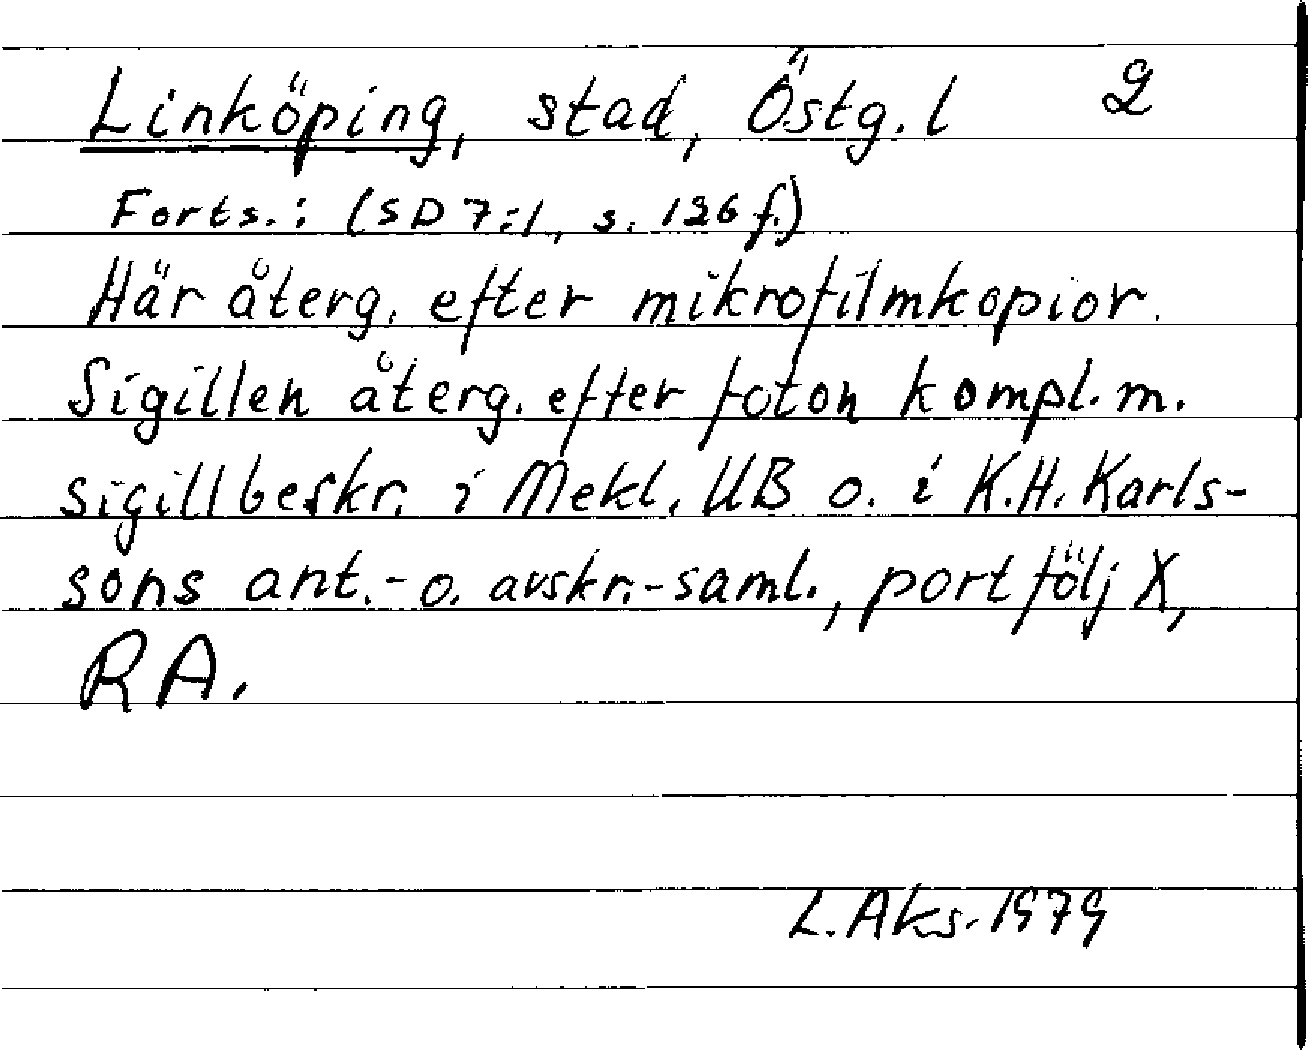 Linköping, stad, Östg. l 2
Forts.: (SD 7:1, s. 126 f.)
Här återg. efter mikrofilmkopior.
Sigillen återg. efter foton kompl. m.
sigillbeskr. i Mekl. UB o. i K.H. Karls-
sons ant.- o. avskr.-saml., portfölj X,
RA.
L. Aks. 1979